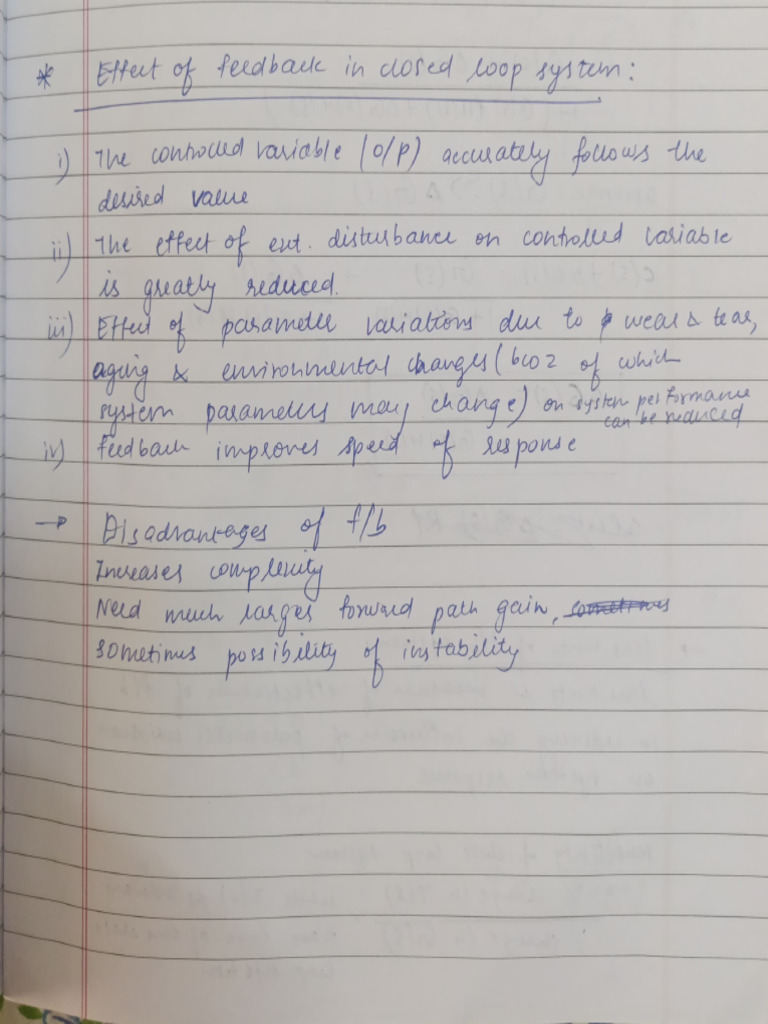 * Effect of feedback in closed loop system:
i) The controlled variable (O/P) accurately follows the
desired value
ii) The effect of ext. disturbance on controlled variable
is greatly reduced.
iii) Effect of parameter variations due to wear & tear,
aging & environmental changes (bcoz of which
system parameters may change) on system performance
can be reduced
iv) Feedback improves speed of response
→ Disadvantages of f/b
Increases complexity
Need much larger forward path gain, sometimes
sometimes possibility of instability